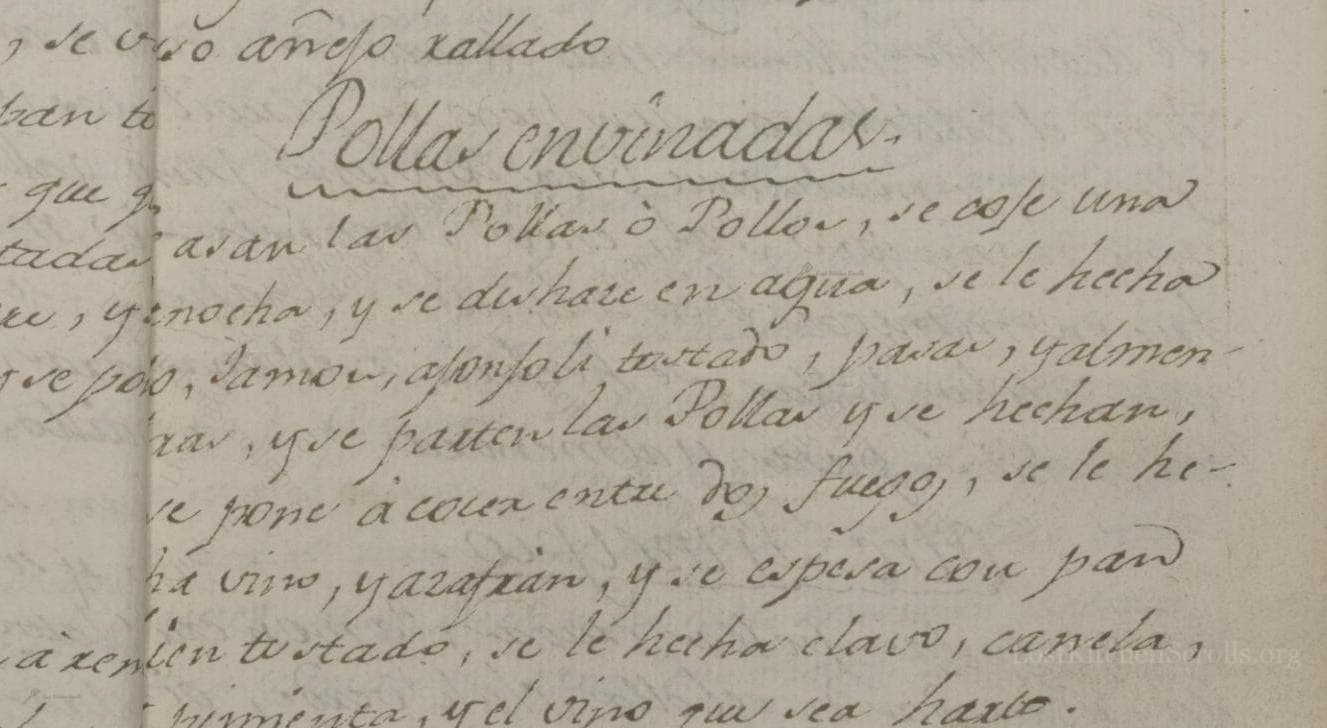 , se v so añejo rallado
pan
Pollas envinadas.
que
tadas asan las Pollas ò Pollos, se cose una
nocha, y se deshaze en agua, se le hecha
y se Jamon, ajonjoli tostado, pasas, y almen-
ras, y se parten las Pollas y se hechan,
se pone à cocer entre dos fuegos, se le he-
ha vino, y azafran, y se espesa con pan
à ien tostado, se le hecha clavo, canela,
pimienta, y el vino que sea harto.
LostKitchenScrolls.org